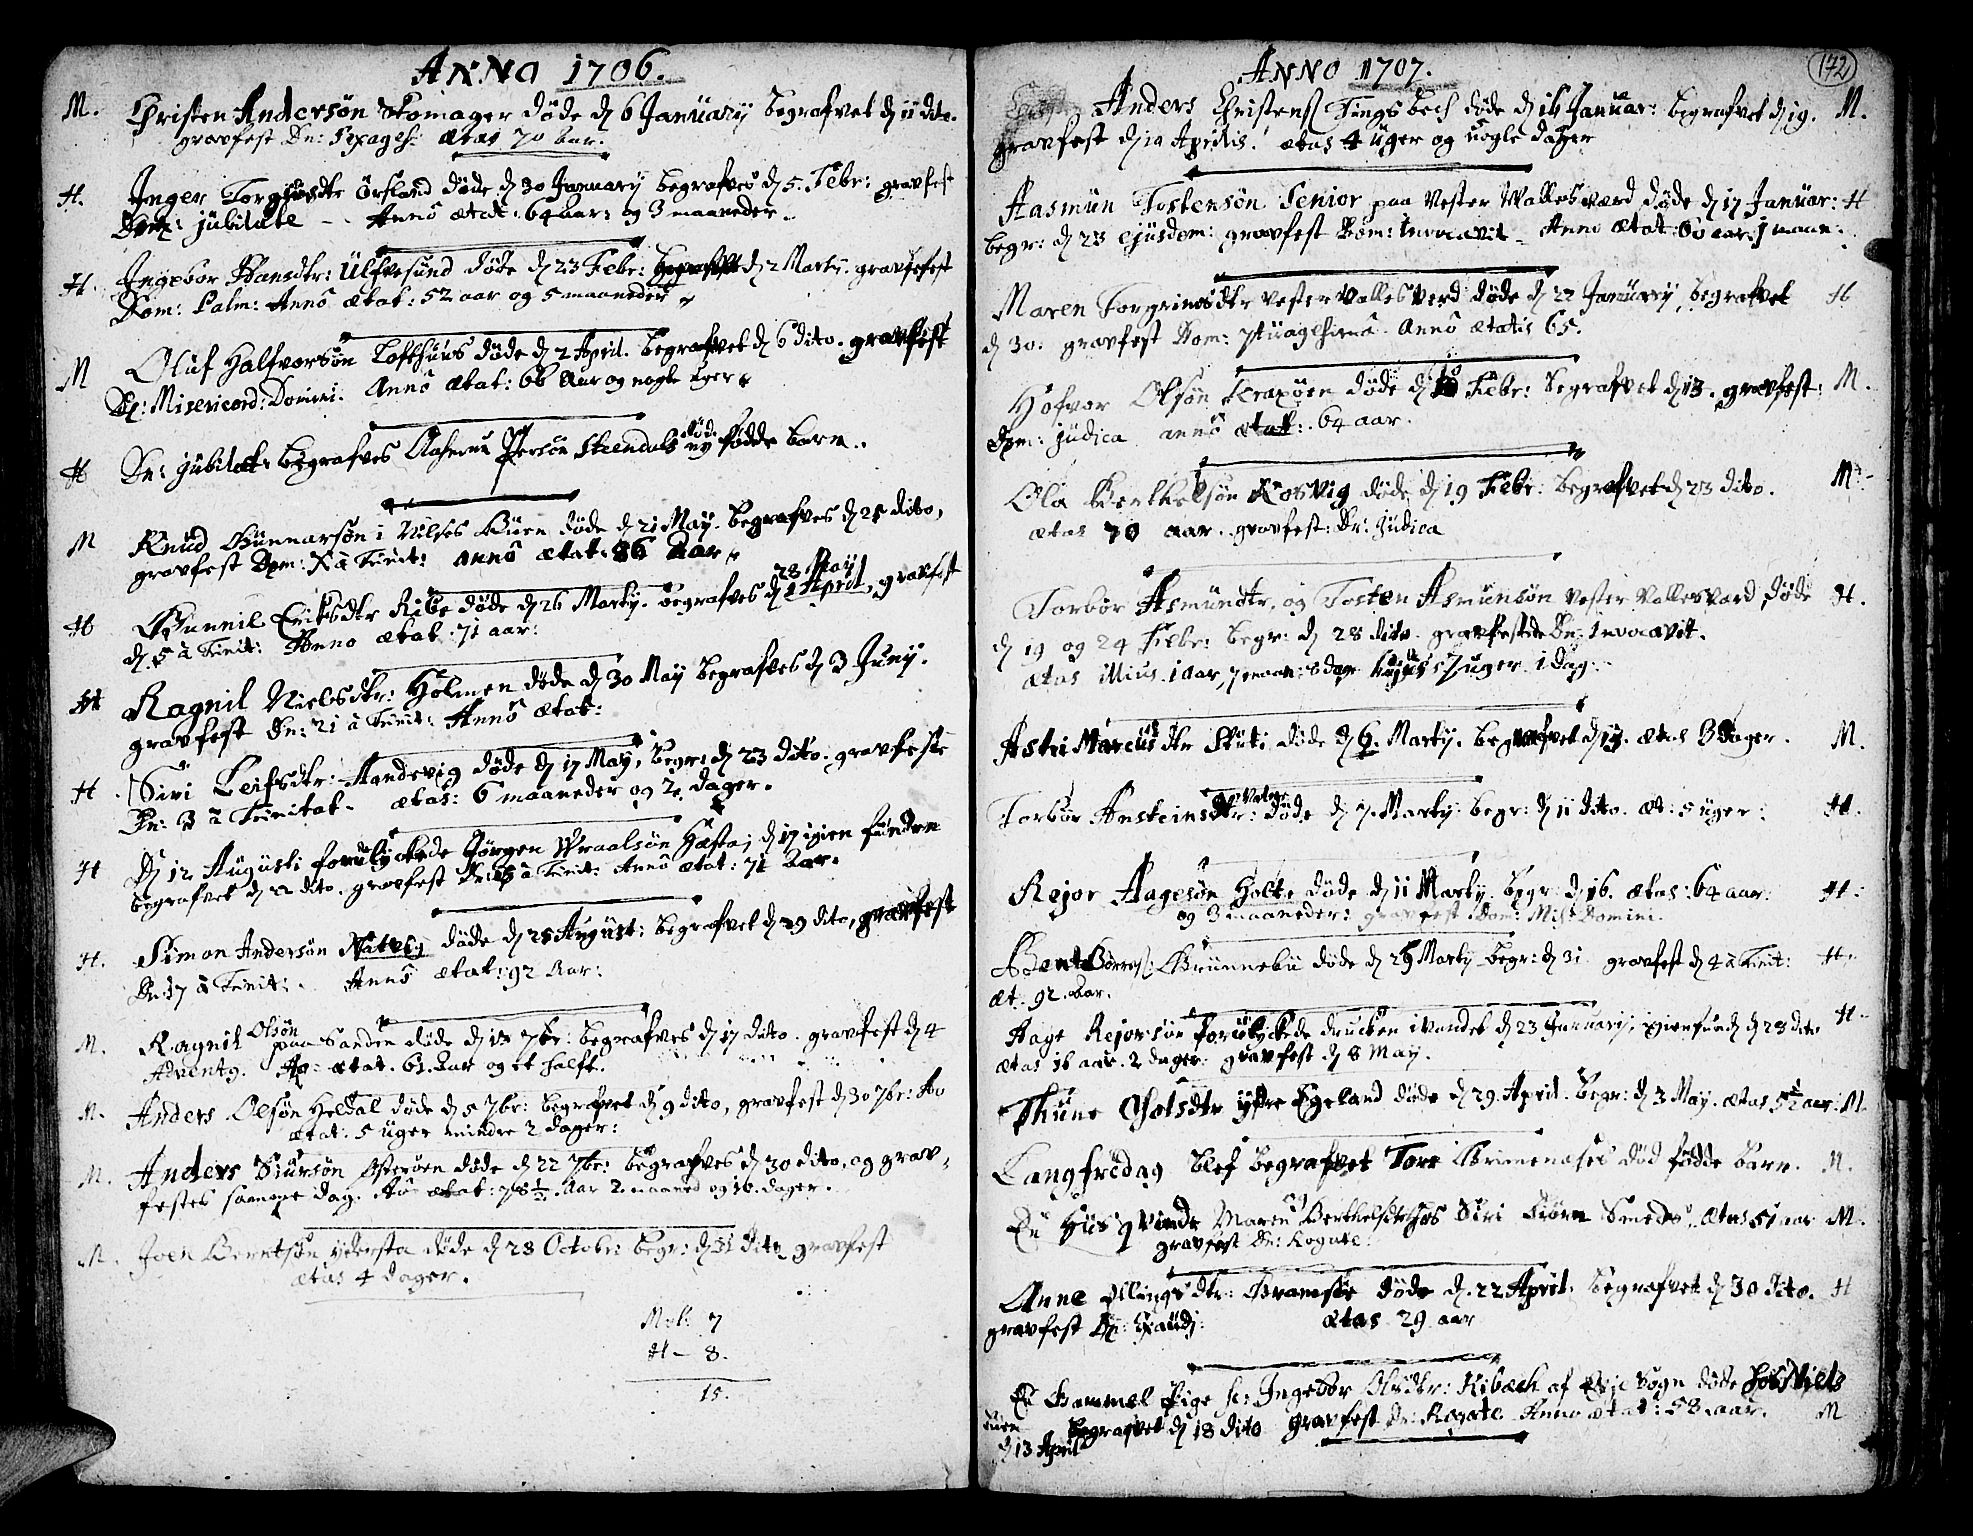 ANNO 1706.
M. Christen Andersøn Skomager døde d 6 Januarij begrafvet d 11 dito.
gravfest Dn: Sexages: ætas 70 aar.
H. Inger Torgiusdtr Örsland døde d 30 January begrafves d 5. Febr: gravfest
Dom: jubilate - - Anno ætat: 64 aar: og 3 maaneder.
H. Ingebor Hansdtr: Ülfvesund døde d 23 Febr: begrafvet d 2 Martij. gravfest
Dom: Palm: Anno ætat: 52 aar og 5 maaneder
M Oluf Halfvorsøn Lofthuus døde d 2 April. begrafvet d 6 dito. gravfest
Dn: Misericord: Domini. Anno ætat: 66 Aar og nogle uger.
død
H Dn: jubilate begrafves Aasmun Persøn Steendals ny fødde barn..
M Knud Gunnarsøn i Nilses Buen døde d 21 May. begrafves d 25 dito,
gravfest Dom: X à Trinit: anno ætat: 86 aar
28 May
H Gunnil Eriksdtr Ribe døde d 26 Martij. begrafves d 1 April, gravfest
d. 5 à Trinit: Anno ætat: 71 aar:
H Ragnil Nielsdtr: Holmen døde d 30 May begrafves d 3 Junij.
gravfest Dn: 21 à Trinit: Anno ætat:
H. Siri Leifsdtr: Aandevig døde d 17 May, begr: d 23 dito. gravfeste
Dn: 3 à Trinitat. ætas: 6 maaneder og 2. dager.
H D 12 Augusti forulyckede Jörgen Wraalsøn Hafsta; d 17 igien funden
begrafvet d 22 dito. gravfest Dn: à Trinit: Anno ætat: 71 Aar.
H. Simon Andersøn Natvig døde d 25 August: begrafvet d 29 dito, gravfest
Dn: 17 à Trinit: Anno ætat: 92 Aar:
Olsøn
M. Ragnil paa Sanden døde d 13 7br: begrafves d 17 dito. gravfest d 4
Advent9. Ao: ætat. 61. Aar og et halft.
M. Anders Olsøn Heldal døde d 5 7br: begrafvet d 9 dito, gravfest d 30 7br: Ao
ætat: 5 uger mindre 2 dager:
M. Anders Siursøn Østerøen døde d 22 7br: begrafves d 30 dito, og grav-
festes samme dag. Ao ætat: 78 1/2. Aar 2. maaned og 16. dager.
M. Joen Berntsøn ydersta døde d 28 Octobr: begr: d 31 dito gravfest
ætas 4 dager.
M: 7
H - 8.
15.
172
ANNO 1707.
Anders Christens: Tingsbech døde d 16 Januar: begrafvet d 19. M.
gravfest d 10 Aprilis. ætas 4 uger og nogle dager
Aasmün Tostensøn Senior paa Vester Vallesværd døde d 17 Januar: H
begr: d 23 ejusdem: gravfest Dom: Invocavit. Anno ætat: 60 aar. 1 maan:
Maren Torgrimsdtr Vester Vallesverd døde d 22 Januarij, begrafvet H
d 30. gravfest Dom: Anno ætatis 65.
10
Hofvor Olsøn Kraxøen døde d Febr: begrafvet d 13. gravfest: M.
Dom: judica anno ætat: 64 aar.
Ola Berthelsøn Kosvig døde d 19 Febr: begrafvet d 23 dito. M.
ætas 70 aar. gravfest: Dn: Judica
Torbor Asmündtr, og Tosten Asmunsøn Vester Vallesværd døde H.
d 19 og 24 Febr: begr: d 28 dito. gravfestede Dn: Invocavit.
ætas illius 1 Aar, 7 maan: 8 dage hujus 7 uger 1 dag.
Astri Marcüsdtr Skuti døde d 6. Martij. begrafvet d 13. ætas 3 dager. M.
Torbor Ansteinsdtr: døde d 7. Martij begr: d 11 dito. æt: 5 uger: H.
Rejor Aagesøn Holte døde d 11 Martij begr: d 16. ætas: 64 aar: H.
og 3 maaneder: gravfest Dom: Mis: Domini.
Bent Børres: Grunnebu døde d 25 Martij begr: d 31 gravfest d 4 à Trinit: H.
æt. 92. Aar.
Aage Rejorsøn forulyckede drucken i vandet d 23 Januarij, igienfund d 28 dito H.
ætas 16 aar. 2 dager. gravfest d 8 May.
Thune Olsdtr ytre Egeland døde d 29. April. begr: d 3 May. ætas 5 1/2 aar: M.
Langfredag blef begrafvet Tore Grimenæses død fødde barn. M.
En Huusqvinde Maren Berthelsdtr hos Siri Smeds. ætas 51 aar M.
gravfest Dn: Rogate.
Anne Ellingsdtr: Gramste døde d. 22 April. begrafvet d 30 dito. H
gravfest Dn: Exaudi: ætas 29 aar
En Gammel Pige Ingebor Olsdtr: Kibæck af Evje Sogn døde hos Niels
buen begrafvet d 18 dito gravfest Dn: Rogate Anno ætat: 58. aar. M
d 13 April